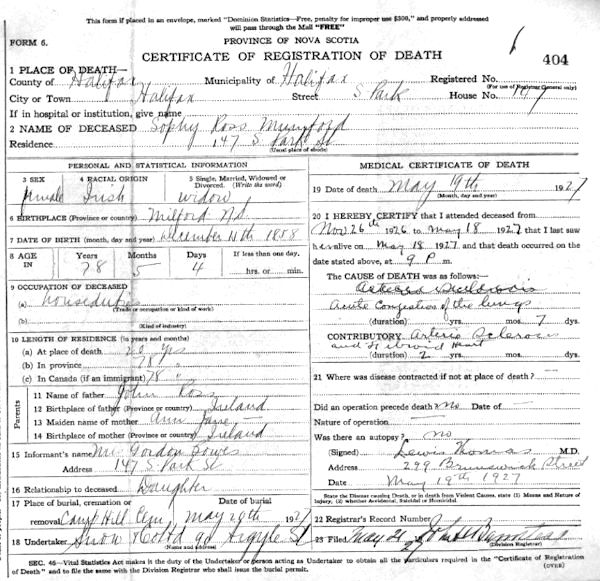 This form if placed in an envelope, marked "Dominion Statistics—Free, penalty for improper use $300," and properly addressed
will pass through the Mail "FREE"
FORM 6.
PROVINCE OF NOVA SCOTIA
6
404
CERTIFICATE OF REGISTRATION OF DEATH
1 PLACE OF DEATH—
County of Halifax Municipality of Halifax Registered No.
(For use of Registrar General only)
City or Town Halifax Street S Park House No. 147
If in hospital or institution, give name
2 NAME OF DECEASED Sophy Ross Mumford
Residence 147 S. Park St
(Usual place of abode)
PERSONAL AND STATISTICAL INFORMATION
3 SEX 4 RACIAL ORIGIN 5 Single, Married, Widowed or Divorced. (Write the word)
female Irish widow
6 BIRTHPLACE (Province or country) Milford N.S.
7 DATE OF BIRTH (month, day and year) December 14th 1858
8 AGE IN Years Months Days If less than one day.
78 5 4 hrs. or min.
9 OCCUPATION OF DECEASED
(a) houseduties
(Trade or occupation or kind of work)
(b)
(Kind of industry)
10 LENGTH OF RESIDENCE (in years and months)
(a) At place of death yrs
(b) In province 78 "
(c) In Canada (if an immigrant) 78 "
Parents
11 Name of father John Ross
12 Birthplace of father (Province or country) Ireland
13 Maiden name of mother Ann Jane
14 Birthplace of mother (Province or country) Ireland
15 Informant's name Mrs Gordon
Address 147 S. Park St
16 Relationship to deceased Daughter
17 Place of burial, cremation or removal Date of burial
Camp Hill Cem. May 1927
18 Undertaker Snow & Co Ltd 90 Argyle St
(Name and address)
MEDICAL CERTIFICATE OF DEATH
19 Date of death May 19th 1927
(Month, day and year)
20 I HEREBY CERTIFY that I attended deceased from
Nov 26th 1926 to May 18 1927 that I last saw
her alive on May 18 1927 and that death occurred on the
date stated above, at 9 P m.
The CAUSE OF DEATH was as follows:—
Arterio Sclerosis
Acute Congestion of the lungs
(duration) yrs. mos. 7 dys.
CONTRIBUTORY Arterio Sclerosis
and Fibroid Heart
(duration) 2 yrs. mos. dys.
21 Where was disease contracted if not at place of death?
Did an operation precede death? no Date of
Nature of operation
Was there an autopsy? no
(Signed) Lewis Thomas M.D.
Address 299 Brunswick Street
Date May 19th 1927
State the Disease causing Death, or in death from Violent Causes, state (1) Means and Nature of
Injury, (2) whether Accidental, Suicidal or Homicidal.
22 Registrar's Record Number
23 Filed May 21 27 John
(Division Registrar)
SEC. 46—Vital Statistics Act makes it the duty of the Undertaker or person acting as Undertaker to obtain all the particulars required in the "Certificate of Registration
of Death" and to file the same with the Division Registrar who shall issue the burial permit. (OVER)